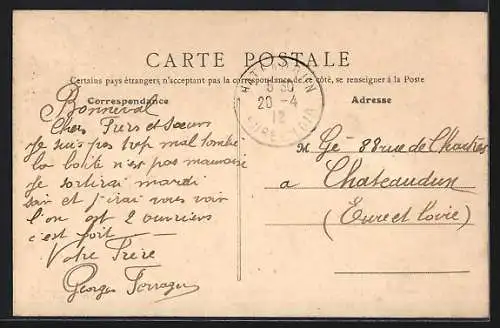 CARTE POSTALE
Certains pays étrangers n'acceptant pas la correspondance de ce côté, se renseigner à la Poste
Correspondance
Adresse
20 - 4
12
Bonneval
Chers Frère et Sœurs
Je suis pas trop mal tombé
la boîte n'est pas mauvaise
Je sortirai mardi
soir et j'irai vous voir
l'on est 2 ouvriers
c'est fort
Votre Frère
Georges
M Gé 88 rue de Chartres
a Chateaudun
(Eure et Loire)